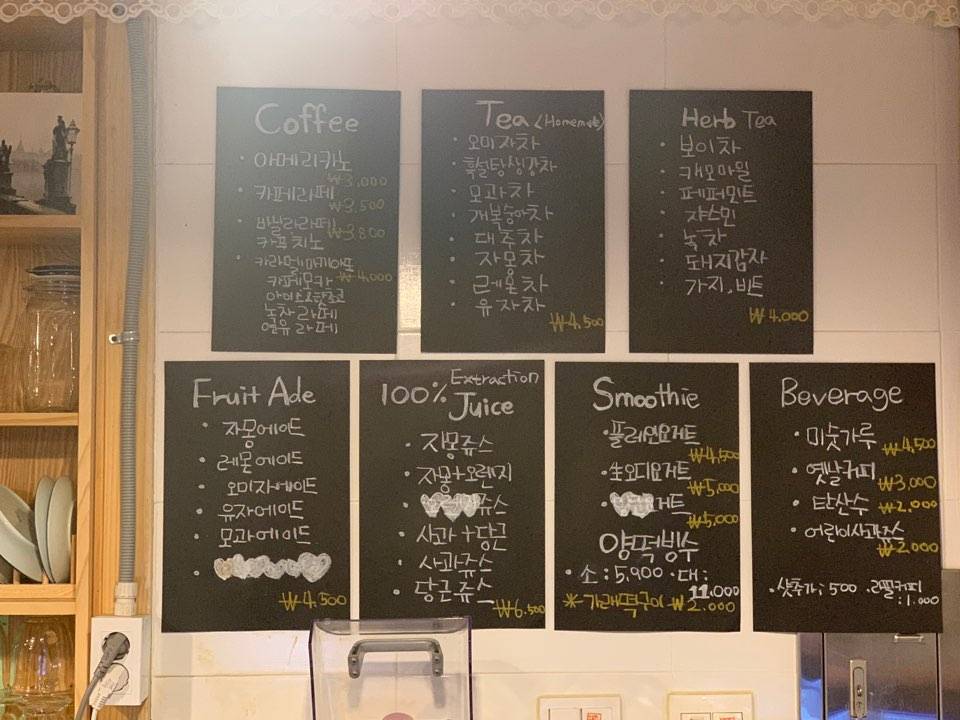 Coffee
· 아메리카노
₩3,000
· 카페라떼
₩3,500
· 바닐라라떼
₩3,800
카푸치노
· 카라멜마끼아또
₩4,000
카페모카
아이스초코
녹차라떼
연유라떼
Tea (Homemade)
· 오미자차
· 흑설탕생강차
· 모과차
· 개복숭아차
· 대추차
· 자몽차
· 레몬차
· 유자차
₩4,500
Herb Tea
· 보이차
· 캐모마일
· 페퍼민트
· 쟈스민
· 녹차
· 돼지감자
· 가지,비트
₩4,000
Fruit Ade
· 자몽에이드
· 레몬에이드
· 오미자에이드
· 유자에이드
· 모과에이드
·
₩4,500
100% Extraction
Juice
· 자몽쥬스
· 자몽+오렌지
· 쥬스
· 사과+당근
· 사과쥬스
· 당근쥬스
₩6,500
Smoothie
· 플레인요거트
₩4,500
· 生오디요거트
₩5,000
· 요거트
₩5,000
양떡빙수
· 소:5,900 ·대:
11,000
※가래떡구이 ₩2,000
Beverage
· 미숫가루
₩4,500
· 옛날커피
₩3,000
· 탄산수
₩2,000
· 어린이사과쥬스
₩2,000
·샷추가:500 ·리필커피
:1,000